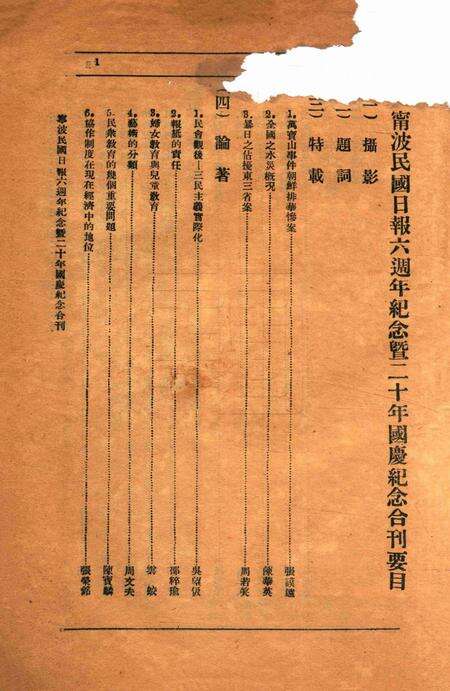 甯波民國日報六週年紀念暨二十年國慶紀念合刊要目
攝影
題詞
特載
1.萬寶山事件朝鮮排華慘案
2.全國之水災概况
3.暴日之佔據東三省案 周若
(四)論著
1.民會觀後—三民主義實際化
2.報紙的責任
3.婦女教育與兒童教育 雲蛟
4.藝術的分類 周文夫
5.民衆教育的幾個重要問題 陳寶麟
6.協作制度在現在經濟中的地位
甯波民國日報六週年紀念暨二十年國慶紀念合刊
1